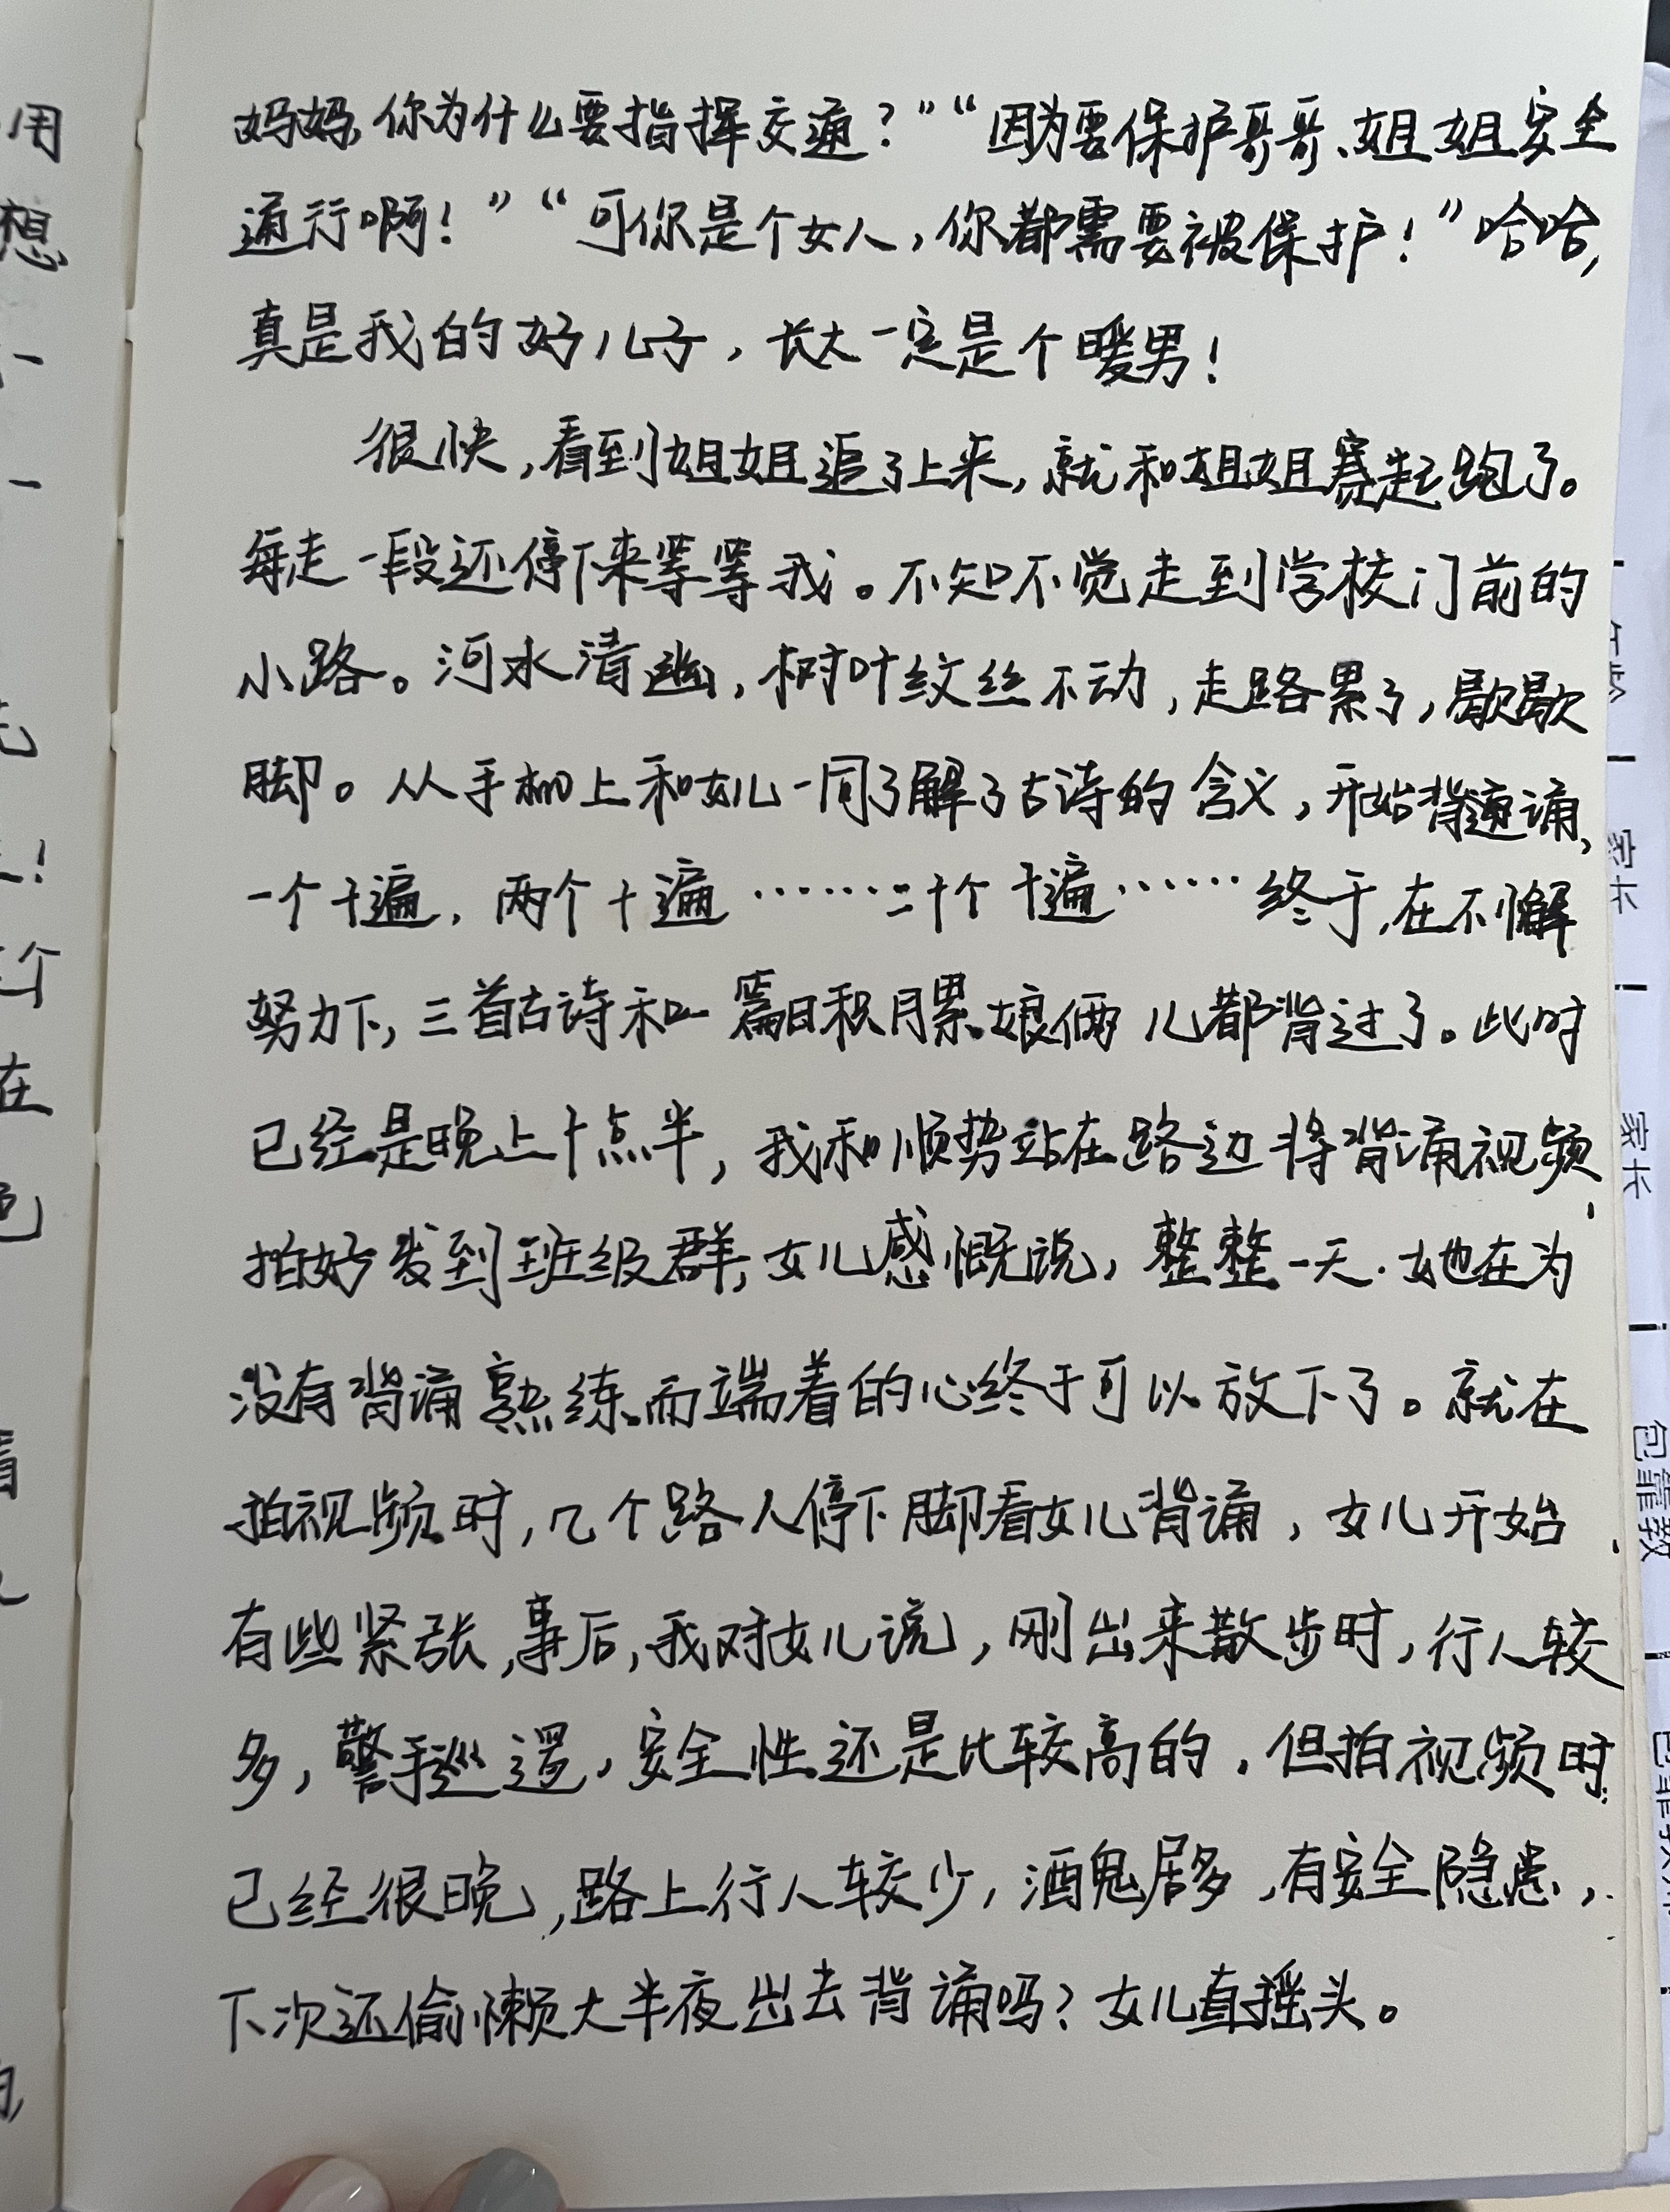 妈妈,你为什么要指挥交通？”“因为要保护哥哥、姐姐安全
通行啊！”“可你是个女人，你都需要被保护！”哈哈,
真是我的好儿子，长大一定是个暖男！
很快,看到姐姐追了上来,就和姐姐赛起跑了。
每走一段还停下来等等我。不知不觉走到学校门前的
小路。河水清幽,树叶纹丝不动,走路累了,歇歇
脚。从手机上和女儿一同了解了古诗的含义,开始背诵,
一个十遍,两个十遍……二十个十遍……终于,在不懈
努力下,三首古诗和一篇日积月累,娘俩儿都背过了。此时
已经是晚上十点半,我和顺势站在路边将背诵视频
拍好发到班级群,女儿感慨说,整整一天,她在为
没有背诵熟练而端着的心终于可以放下了。就在
拍视频时,几个路人停下脚看女儿背诵,女儿开始
有些紧张,事后,我对女儿说,刚出来散步时,行人较
多,警手巡逻,安全性还是比较高的,但拍视频时
已经很晚,路上行人较少,酒鬼居多,有安全隐患,
下次还偷懒大半夜出去背诵吗？女儿直摇头。
用
想
一
一
！
个
在
家长
家长
包靠教